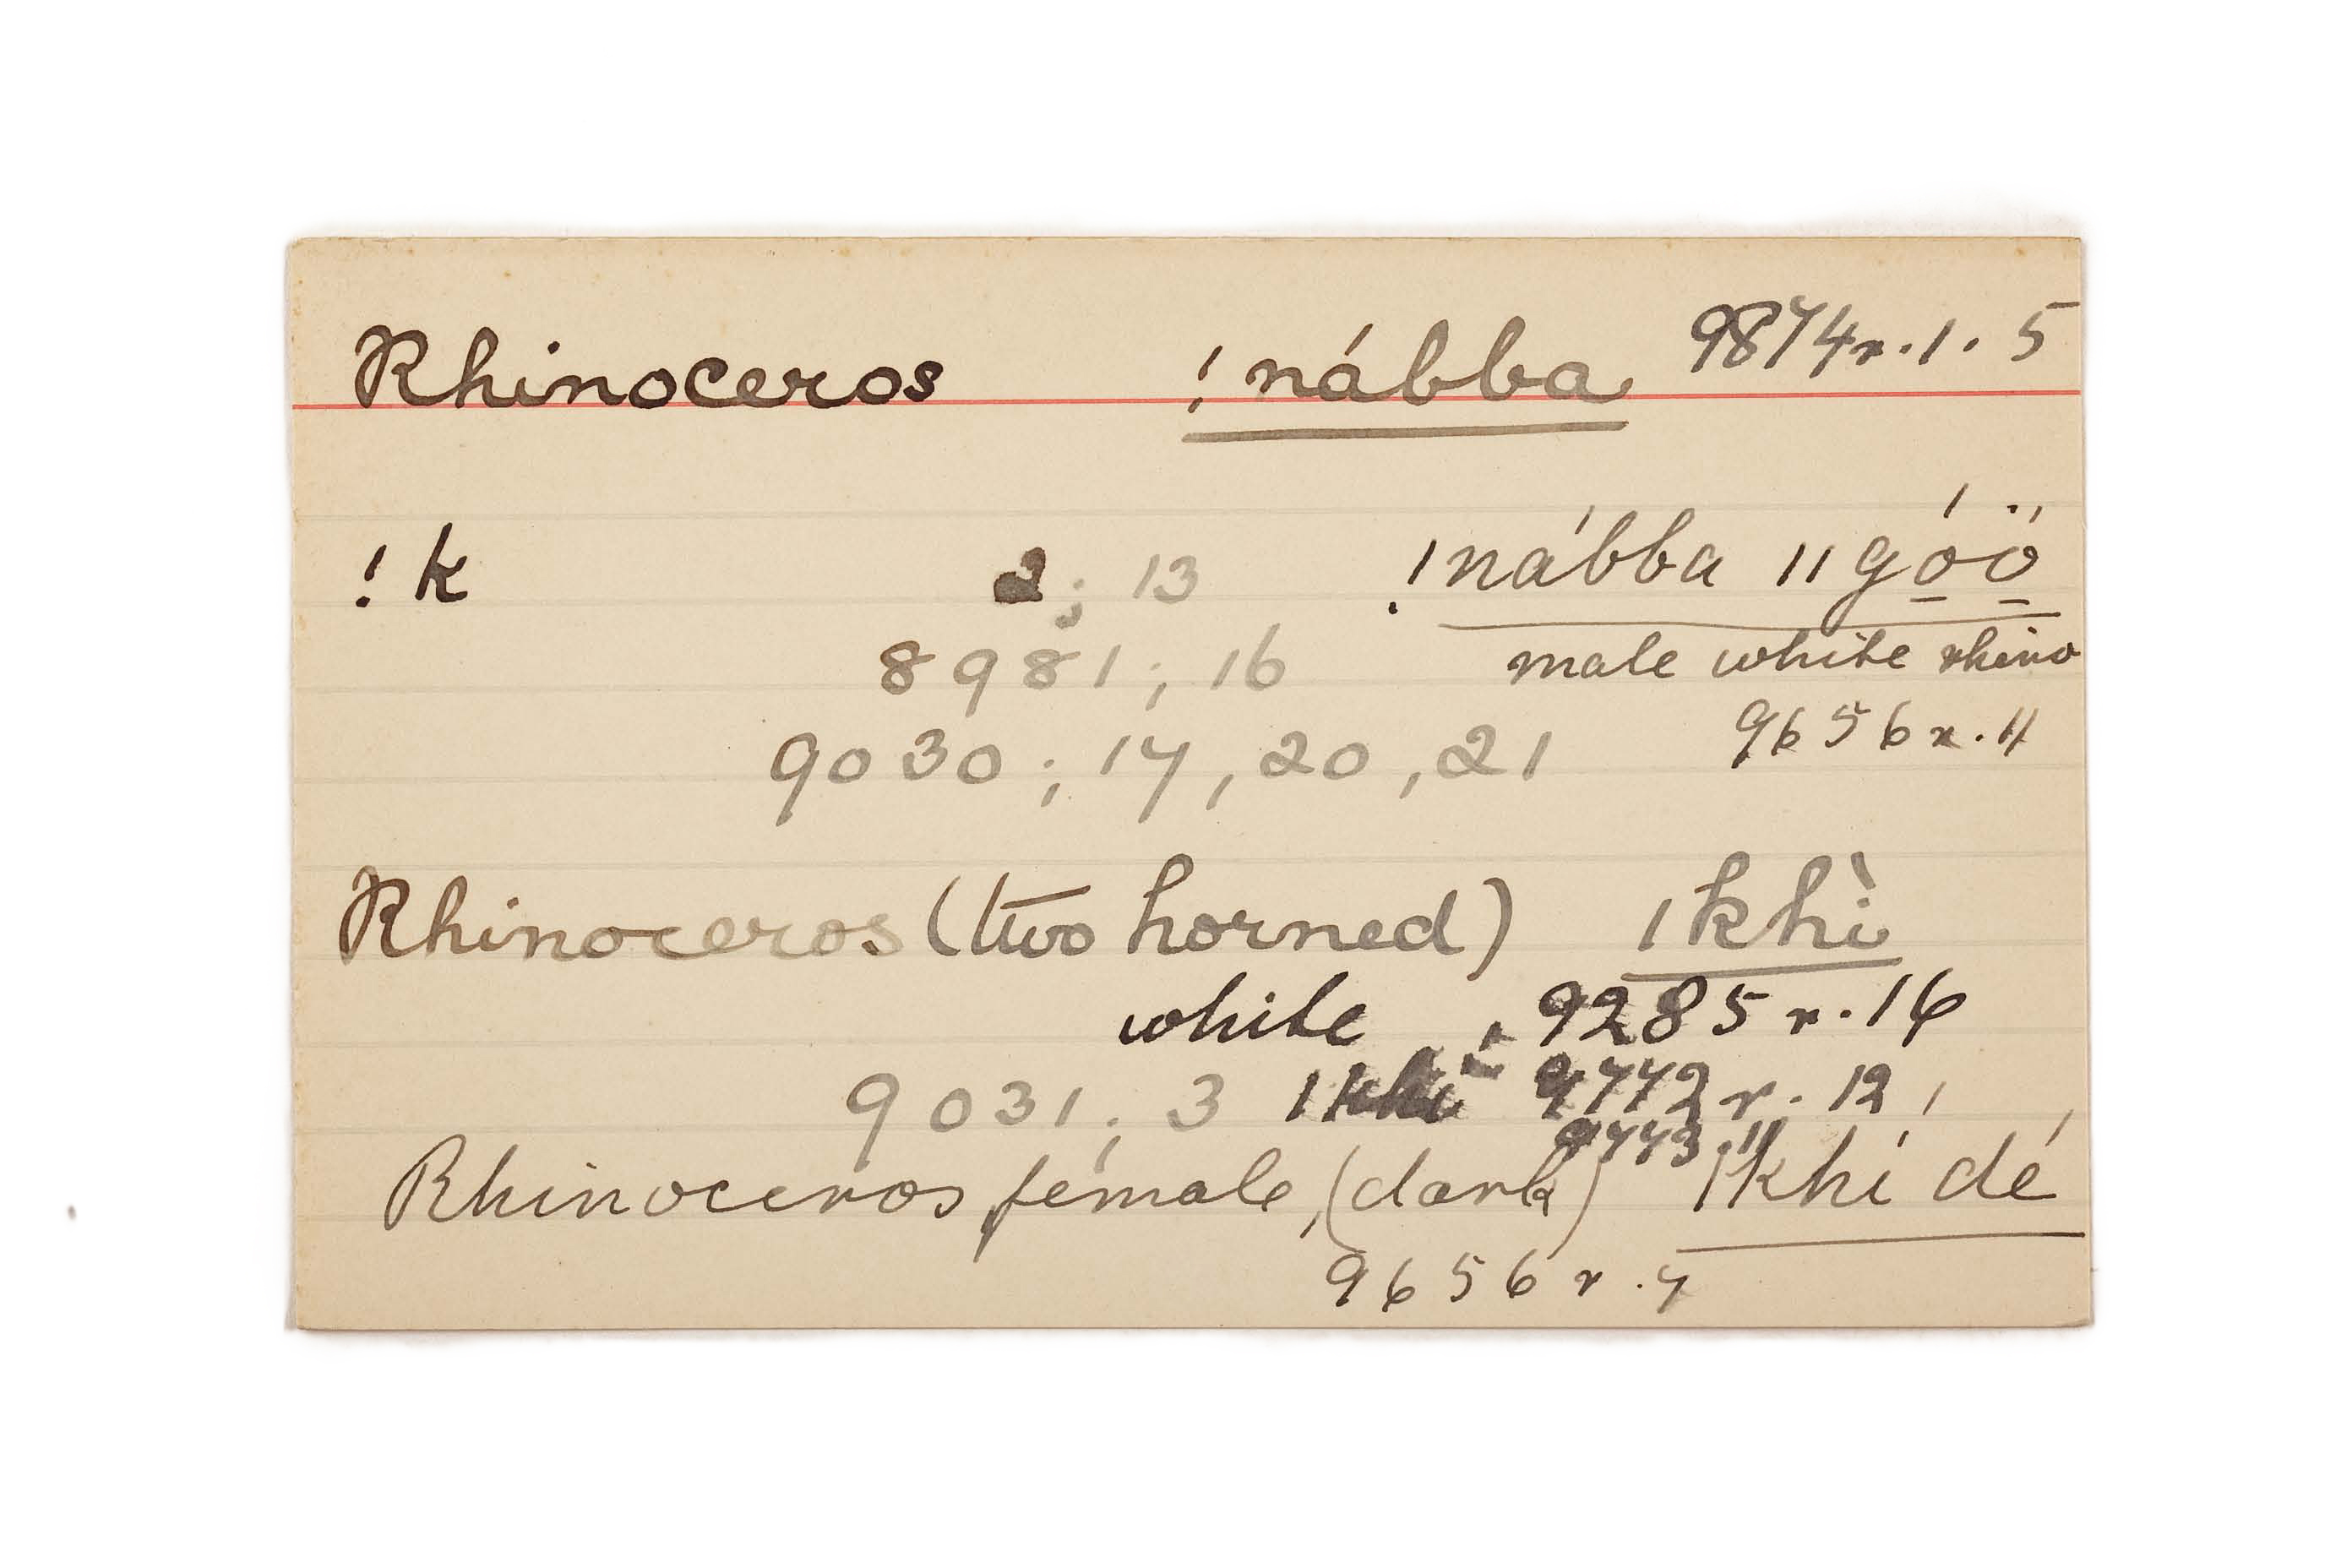 Rhinoceros !nábba 9874r.1.5
!k 2; 13 !nábba ||gó̱ö̱
8981; 16 male white rhino
9030; 17, 20, 21 9656r.11
Rhinoceros (two horned) |khì
white 9285r.16
9031; 3 9772r.12
9773.11
Rhinoceros female, (dark) |khí dé
9656r.7